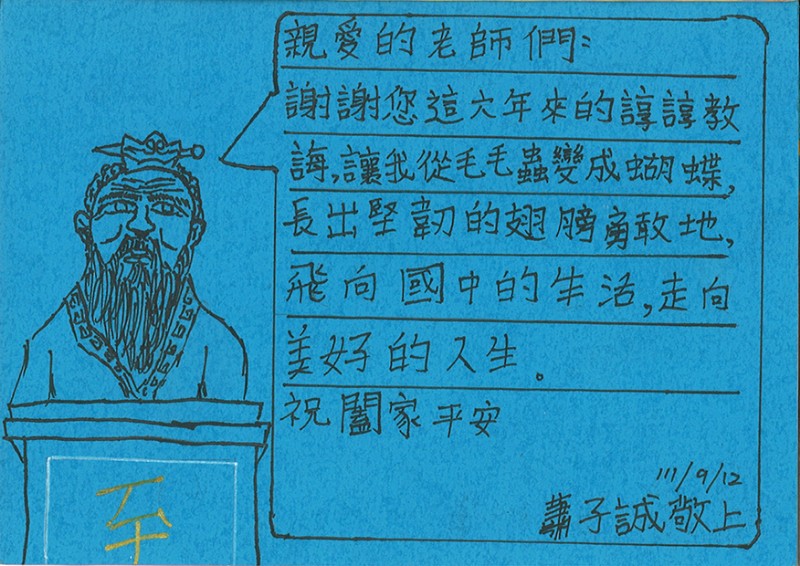 親愛的老師們:
謝謝您這六年來的諄諄教
誨,讓我從毛毛蟲變成蝴蝶,
長出堅韌的翅膀勇敢地,
飛向國中的生活,走向
美好的人生。
祝闔家平安
111/9/12
蕭子誠敬上
至